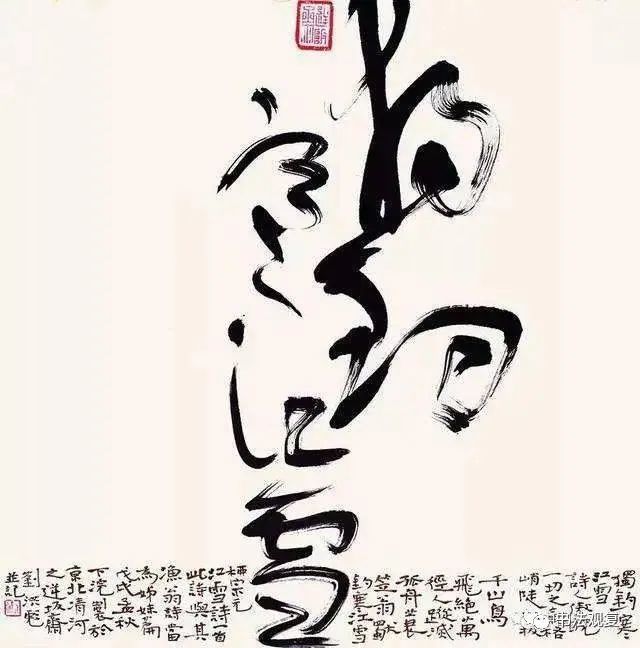 獨釣
寒江雪
獨釣寒
江雪
詩人傲
一切之格
峭陡拔
千山鳥
飛絕萬
徑人蹤滅
孤舟蓑
笠翁獨
釣寒江雪
柳宗元
江雪詩一首
此詩與其
漁翁詩當
為姊妹篇
戊戌孟秋
下浣製於
京北清河
之逆坂齋
劉洪彪
並記
书法观复